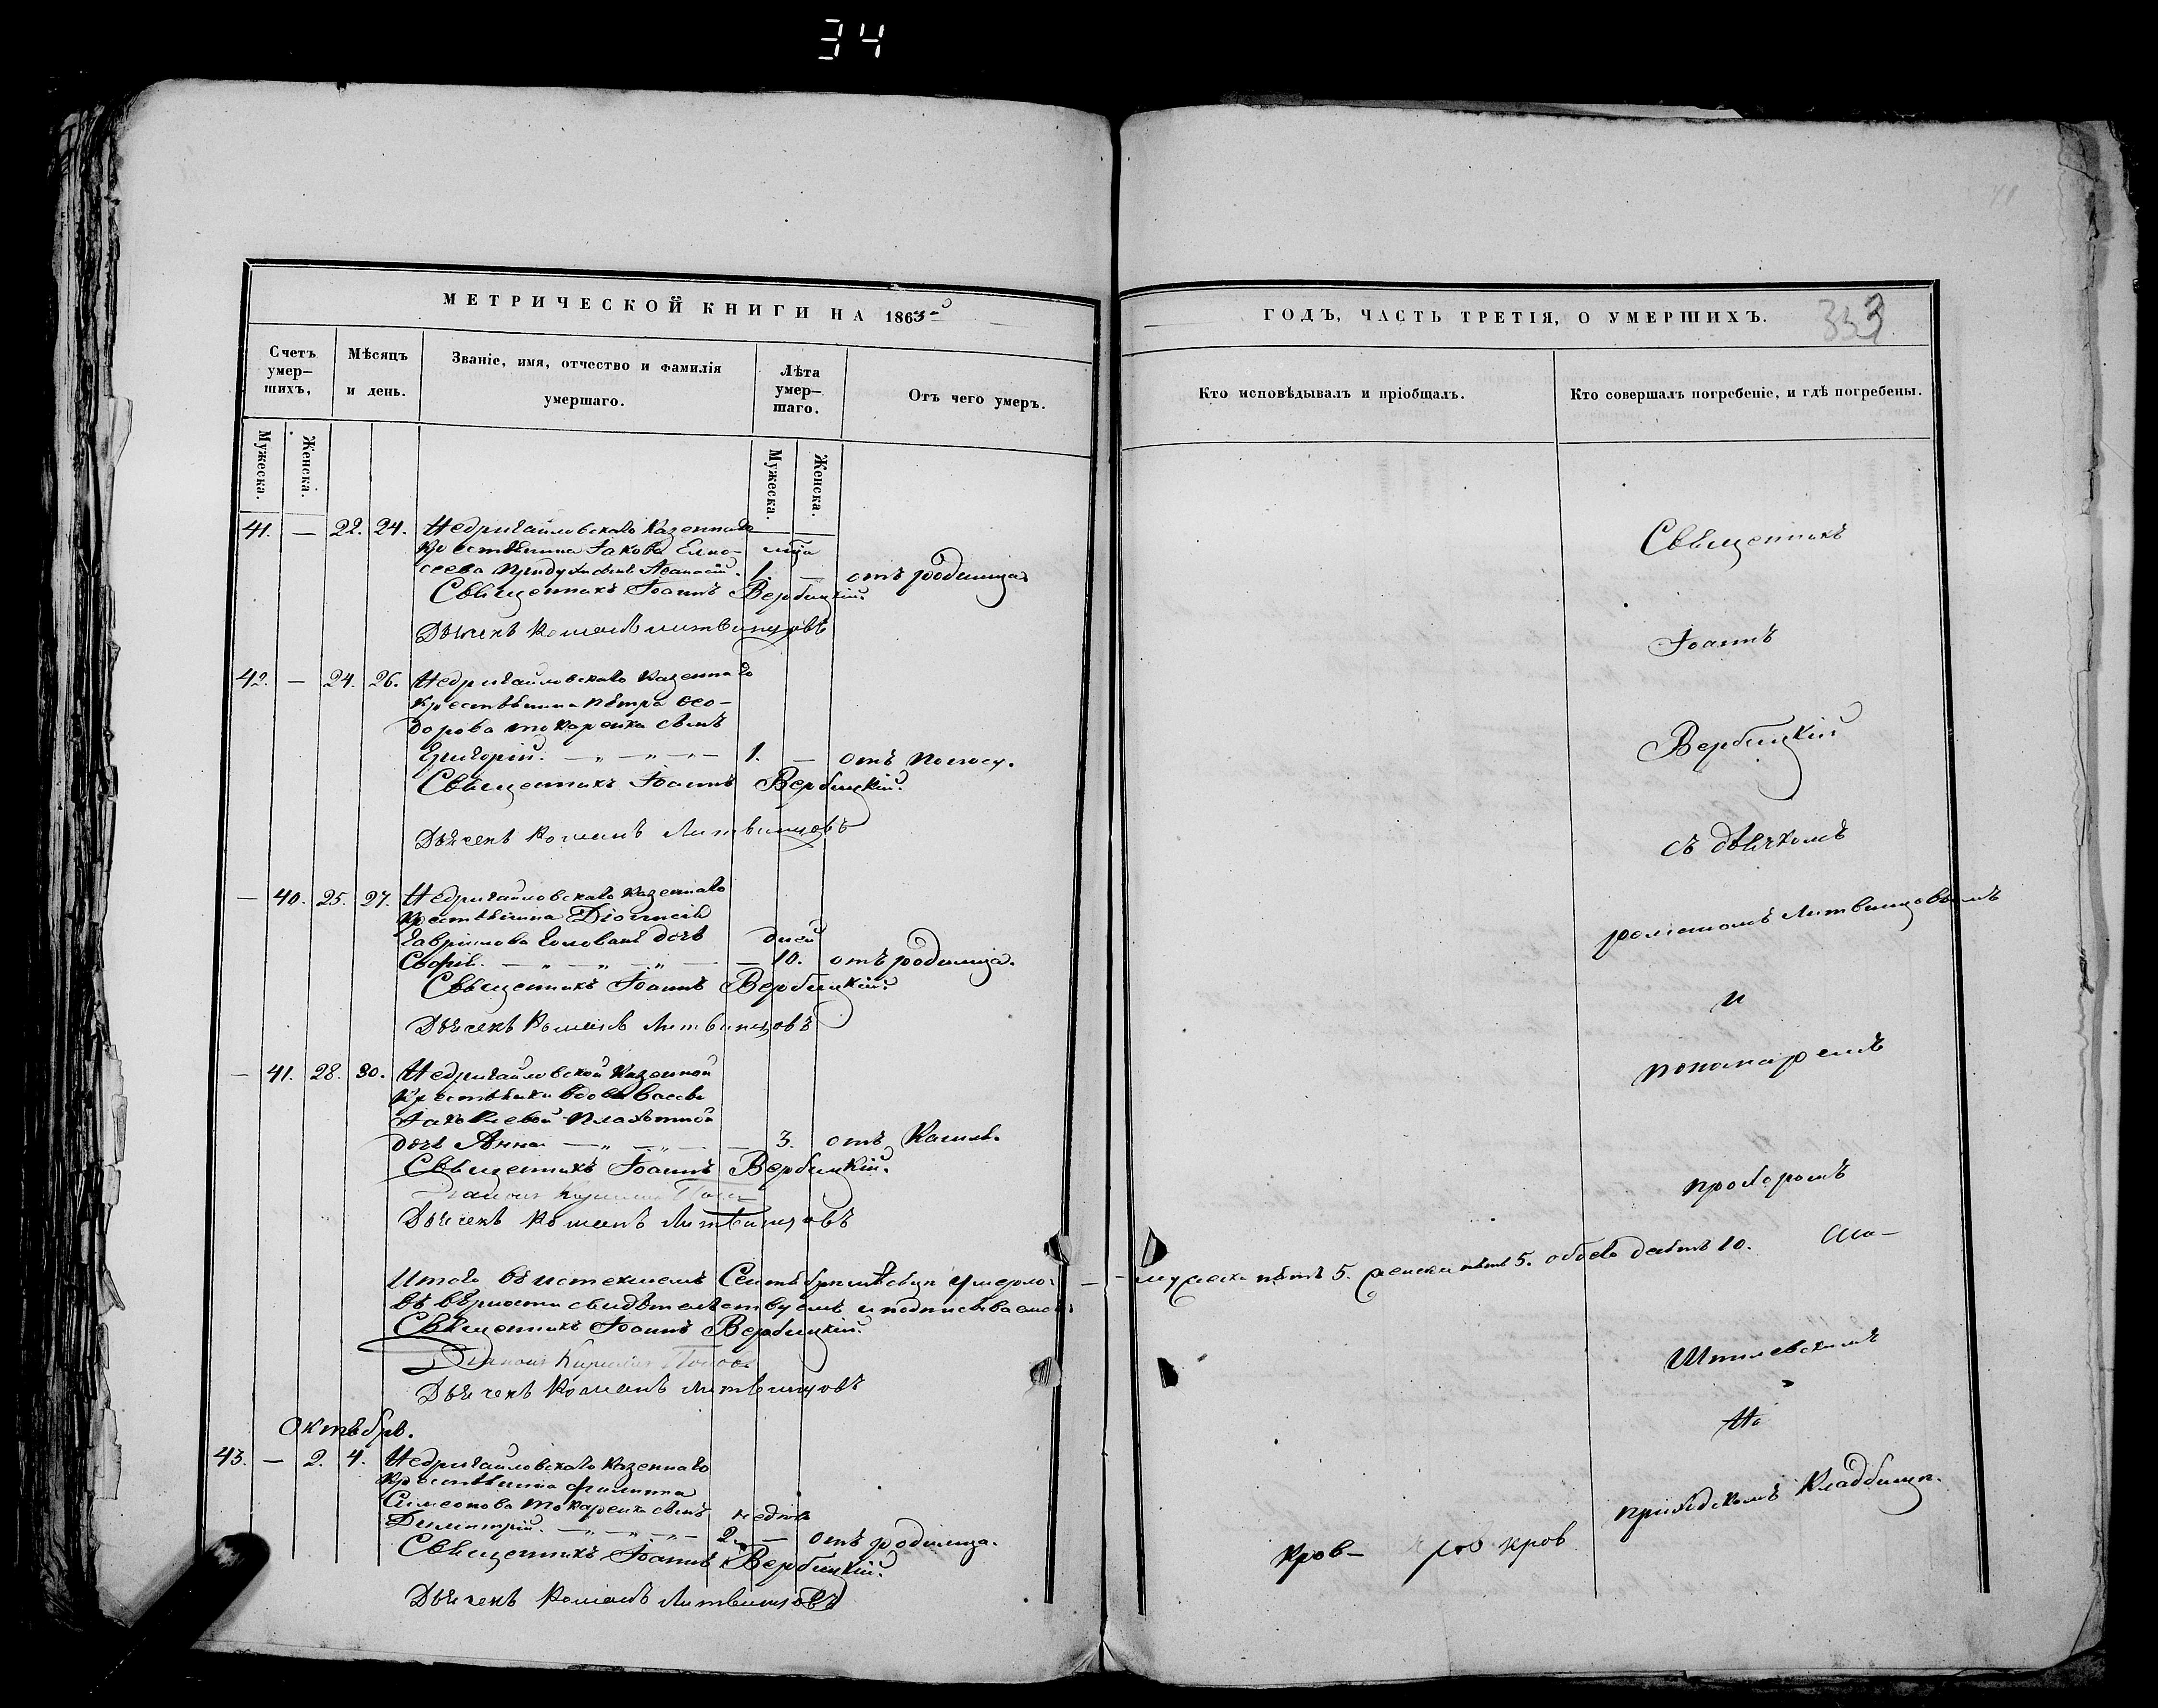 34
МЕТРИЧЕСКОЙ КНИГИ НА 1863й
Счетъ умер–шихъ,
Мѣсяцъ и день.
Званіе, имя, отчество и фамилія умершаго.
Лѣта умер–шаго.
Отъ чего умеръ.
Мужеска.
Женска.
Мужеска.
Женска.
41. — 22. 24. Недригайловскаго казеннаго
крестьянина Іакова Елисѣ- мца
сеева сынъ Аѳанасій. 1. — отъ родимца.
Священникъ Іоаннъ Вербицкій.
Дьячекъ Романъ Литвинцовъ
42. — 24. 26. Недригайловскаго казеннаго
крестьянина Петра Ѳео-
дорова Токаренка сынъ
Григорій. — „ — „ — „ — 1. — отъ поносу.
Священникъ Іоаннъ Вербицкій.
Дьячекъ Романъ Литвинцовъ
— 40. 25. 27. Недригайловскаго казеннаго
крестьянина Діонисія
Гавріилова Голована дочь дней
Софія. — „ — „ — „ — — 10. отъ родимца.
Священникъ Іоаннъ Вербицкій.
Дьячекъ Романъ Литвинцовъ
— 41. 28. 30. Недригайловской казенной
крестьянки вдовы Вассы
Іаковлевой
дочь Анна — „ — „ — — 3. отъ кашля.
Священникъ Іоаннъ Вербицкій.
Дьячекъ Романъ Литвинцовъ
Итого въ истекшемъ Сентябрѣ мѣсяцѣ умерло: —
въ вѣрности свидѣтельствуемъ и подписываемся:
Священникъ Іоаннъ Вербицкій.
Діаконъ Поповъ
Дьячекъ Романъ Литвинцовъ
Октябрь.
43. — 2. 4. Недригайловскаго казеннаго
крестьянина Филиппа
Симеонова Токаренка сынъ недѣль
Димитрій. — „ — „ — „ — 2. — отъ родимца.
Священникъ Іоаннъ Вербицкій.
Дьячекъ Романъ Литвинцовъ
ГОДЪ, ЧАСТЬ ТРЕТІЯ, О УМЕРШИХЪ.
333
Кто исповѣдывалъ и пріобщалъ.
Кто совершалъ погребеніе, и гдѣ погребены.
Священникъ
Іоаннъ
Вербицкій
съ дьячкомъ
Романомъ Литвинцовымъ
и
пономаремъ
Прохоромъ
— мужеска пять 5. женска пять 5. обоего десять 10.
Ша–
Шпилевскимъ
На
приходскомъ кладбищѣ.
Кров– кров